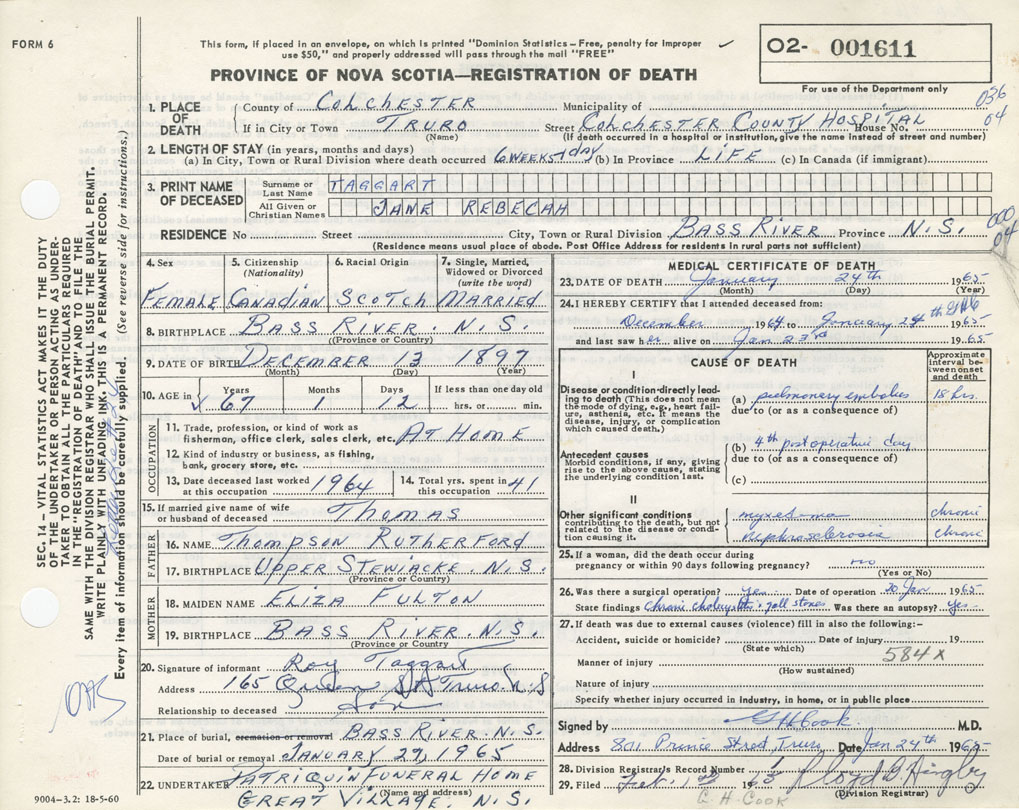 FORM 6
This form, if placed in an envelope, on which is printed "Dominion Statistics – Free, penalty for improper
use $50," and properly addressed will pass through the mail "FREE"
O2- 001611
PROVINCE OF NOVA SCOTIA—REGISTRATION OF DEATH
For use of the Department only
036
04
1. PLACE OF DEATH County of COLCHESTER Municipality of
If in City or Town TRURO Street COLCHESTER COUNTY HOSPITAL House No.
(Name) (If death occurred in a hospital or institution, give the name instead of street and number)
2. LENGTH OF STAY (in years, months and days)
(a) In City, Town or Rural Division where death occurred 6 WEEKS 1 DAY (b) In Province LIFE (c) In Canada (if immigrant)
3. PRINT NAME OF DECEASED Surname or Last Name TAGGART
All Given or Christian Names JANE REBECAH
RESIDENCE No Street City, Town or Rural Division BASS RIVER Province N.S.
000
04
(Residence means usual place of abode. Post Office Address for residents in rural parts not sufficient)
4. Sex 5. Citizenship (Nationality) 6. Racial Origin 7. Single, Married, Widowed or Divorced (write the word)
FEMALE CANADIAN SCOTCH MARRIED
8. BIRTHPLACE BASS RIVER. N.S.
(Province or Country)
9. DATE OF BIRTH DECEMBER 13 1897
(Month) (Day) (Year)
10. AGE in Years Months Days If less than one day old
67 1 12 hrs. or min.
OCCUPATION
11. Trade, profession, or kind of work as
fisherman, office clerk, sales clerk, etc. AT HOME
12. Kind of industry or business, as fishing,
bank, grocery store, etc.
13. Date deceased last worked at this occupation 1964 14. Total yrs. spent in this occupation 41
15. If married give name of wife
or husband of deceased THOMAS
FATHER
16. NAME THOMPSON RUTHERFORD
17. BIRTHPLACE UPPER STEWIACKE. N.S.
(Province or Country)
MOTHER
18. MAIDEN NAME ELIZA FULTON
19. BIRTHPLACE BASS RIVER. N.S.
(Province or Country)
20. Signature of informant Roy Taggart
Address 165 Queen St Truro. N.S
Relationship to deceased Son
21. Place of burial, cremation or removal BASS RIVER. N.S.
Date of burial or removal JANUARY 27, 1965
22. UNDERTAKER MATTATALL FUNERAL HOME
(Name and address)
GREAT VILLAGE, N.S.
9004–3.2: 18-5-60
MEDICAL CERTIFICATE OF DEATH
23. DATE OF DEATH January 24th 1965
(Month) (Day) (Year)
24. I HEREBY CERTIFY that I attended deceased from:
December 1964 to January 24th 1965
and last saw her alive on Jan 23rd 1965
CAUSE OF DEATH
Approximate interval between onset and death
I
Disease or condition directly leading to death (This does not mean the mode of dying, e.g., heart failure, asthenia, etc. It means the disease, injury, or complication which caused death.)
(a) pulmonary embolus 18 hrs.
due to (or as a consequence of)
Antecedent causes
Morbid conditions, if any, giving rise to the above cause, stating the underlying condition last.
(b) 4th post operative day
due to (or as a consequence of)
(c)
II
Other significant conditions
contributing to the death, but not related to the disease or condition causing it.
myxedema chronic
nephrosclerosis chronic
25. If a woman, did the death occur during
pregnancy or within 90 days following pregnancy? no
(Yes or No)
26. Was there a surgical operation? yes Date of operation 20 Jan 1965
State findings Chronic cholecystitis & gall stones Was there an autopsy? yes
27. If death was due to external causes (violence) fill in also the following:-
Accident, suicide or homicide? Date of injury 19
(State which) 584x
Manner of injury
(How sustained)
Nature of injury
Specify whether injury occurred in industry, in home, or in public place
Signed by G H Cook M.D.
Address 801 Prince Street Truro Date Jan 24th 1965
28. Division Registrar's Record Number
29. Filed Feb. 1 1965
(Division Registrar)
G. H. COOK
SEC. 14 – VITAL STATISTICS ACT MAKES IT THE DUTY
OF THE UNDERTAKER OR PERSON ACTING AS UNDER-
TAKER TO OBTAIN ALL THE PARTICULARS REQUIRED
IN THE "REGISTRATION OF DEATH" AND TO FILE THE
SAME WITH THE DIVISION REGISTRAR WHO SHALL ISSUE THE BURIAL PERMIT.
WRITE PLAINLY WITH UNFADING INK. THIS IS A PERMANENT RECORD.
Every item of information should be carefully supplied. (See reverse side for instructions.)